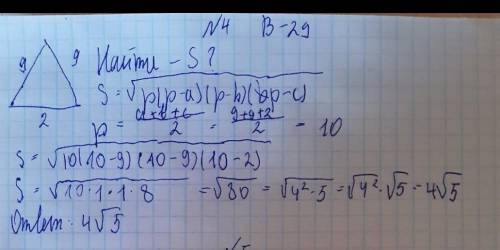 №4 В-29
9 9
2
Найти - S?
S = √p(p-a)(p-b)(p-c)
p = a+b+c/2 = 9+9+2/2 = 10
S = √10(10-9)(10-9)(10-2)
S = √10·1·1·8 = √80 = √4²·5 = √4²·√5 = 4√5
Ответ: 4√5